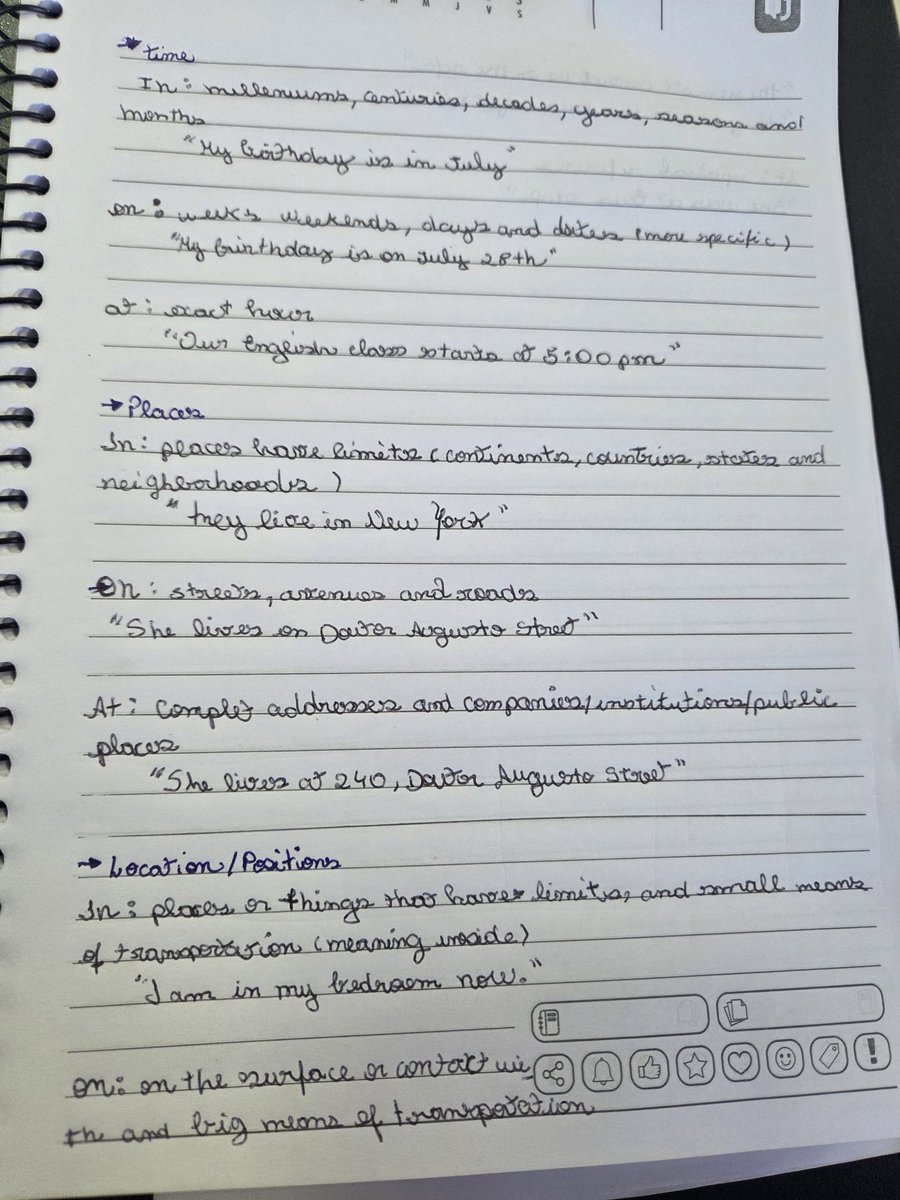 M J V S
→ time
In: milleniums, centuries, decades, years, seasons and
months
"My birthday is in July"
on: weeks weekends, days and dates (more specific)
"My birthday is on July 28th"
at: exact hour
"Our english class starts at 5:00 pm"
→ Places
In: places have limits (continents, countries, states and
neighborhoods)
"they live in New York"
On: streets, avenues and roads
"She lives on Doutor Augusto Street"
At: Complet addresses and companies/institutions/public
places
"She lives at 240, Doutor Augusto Street"
→ Location/Positions
In: places or things that have limits, and small means
of transportation (meaning inside)
"I am in my bedroom now."
on: on the surface or contact wi
th and big means of transportation